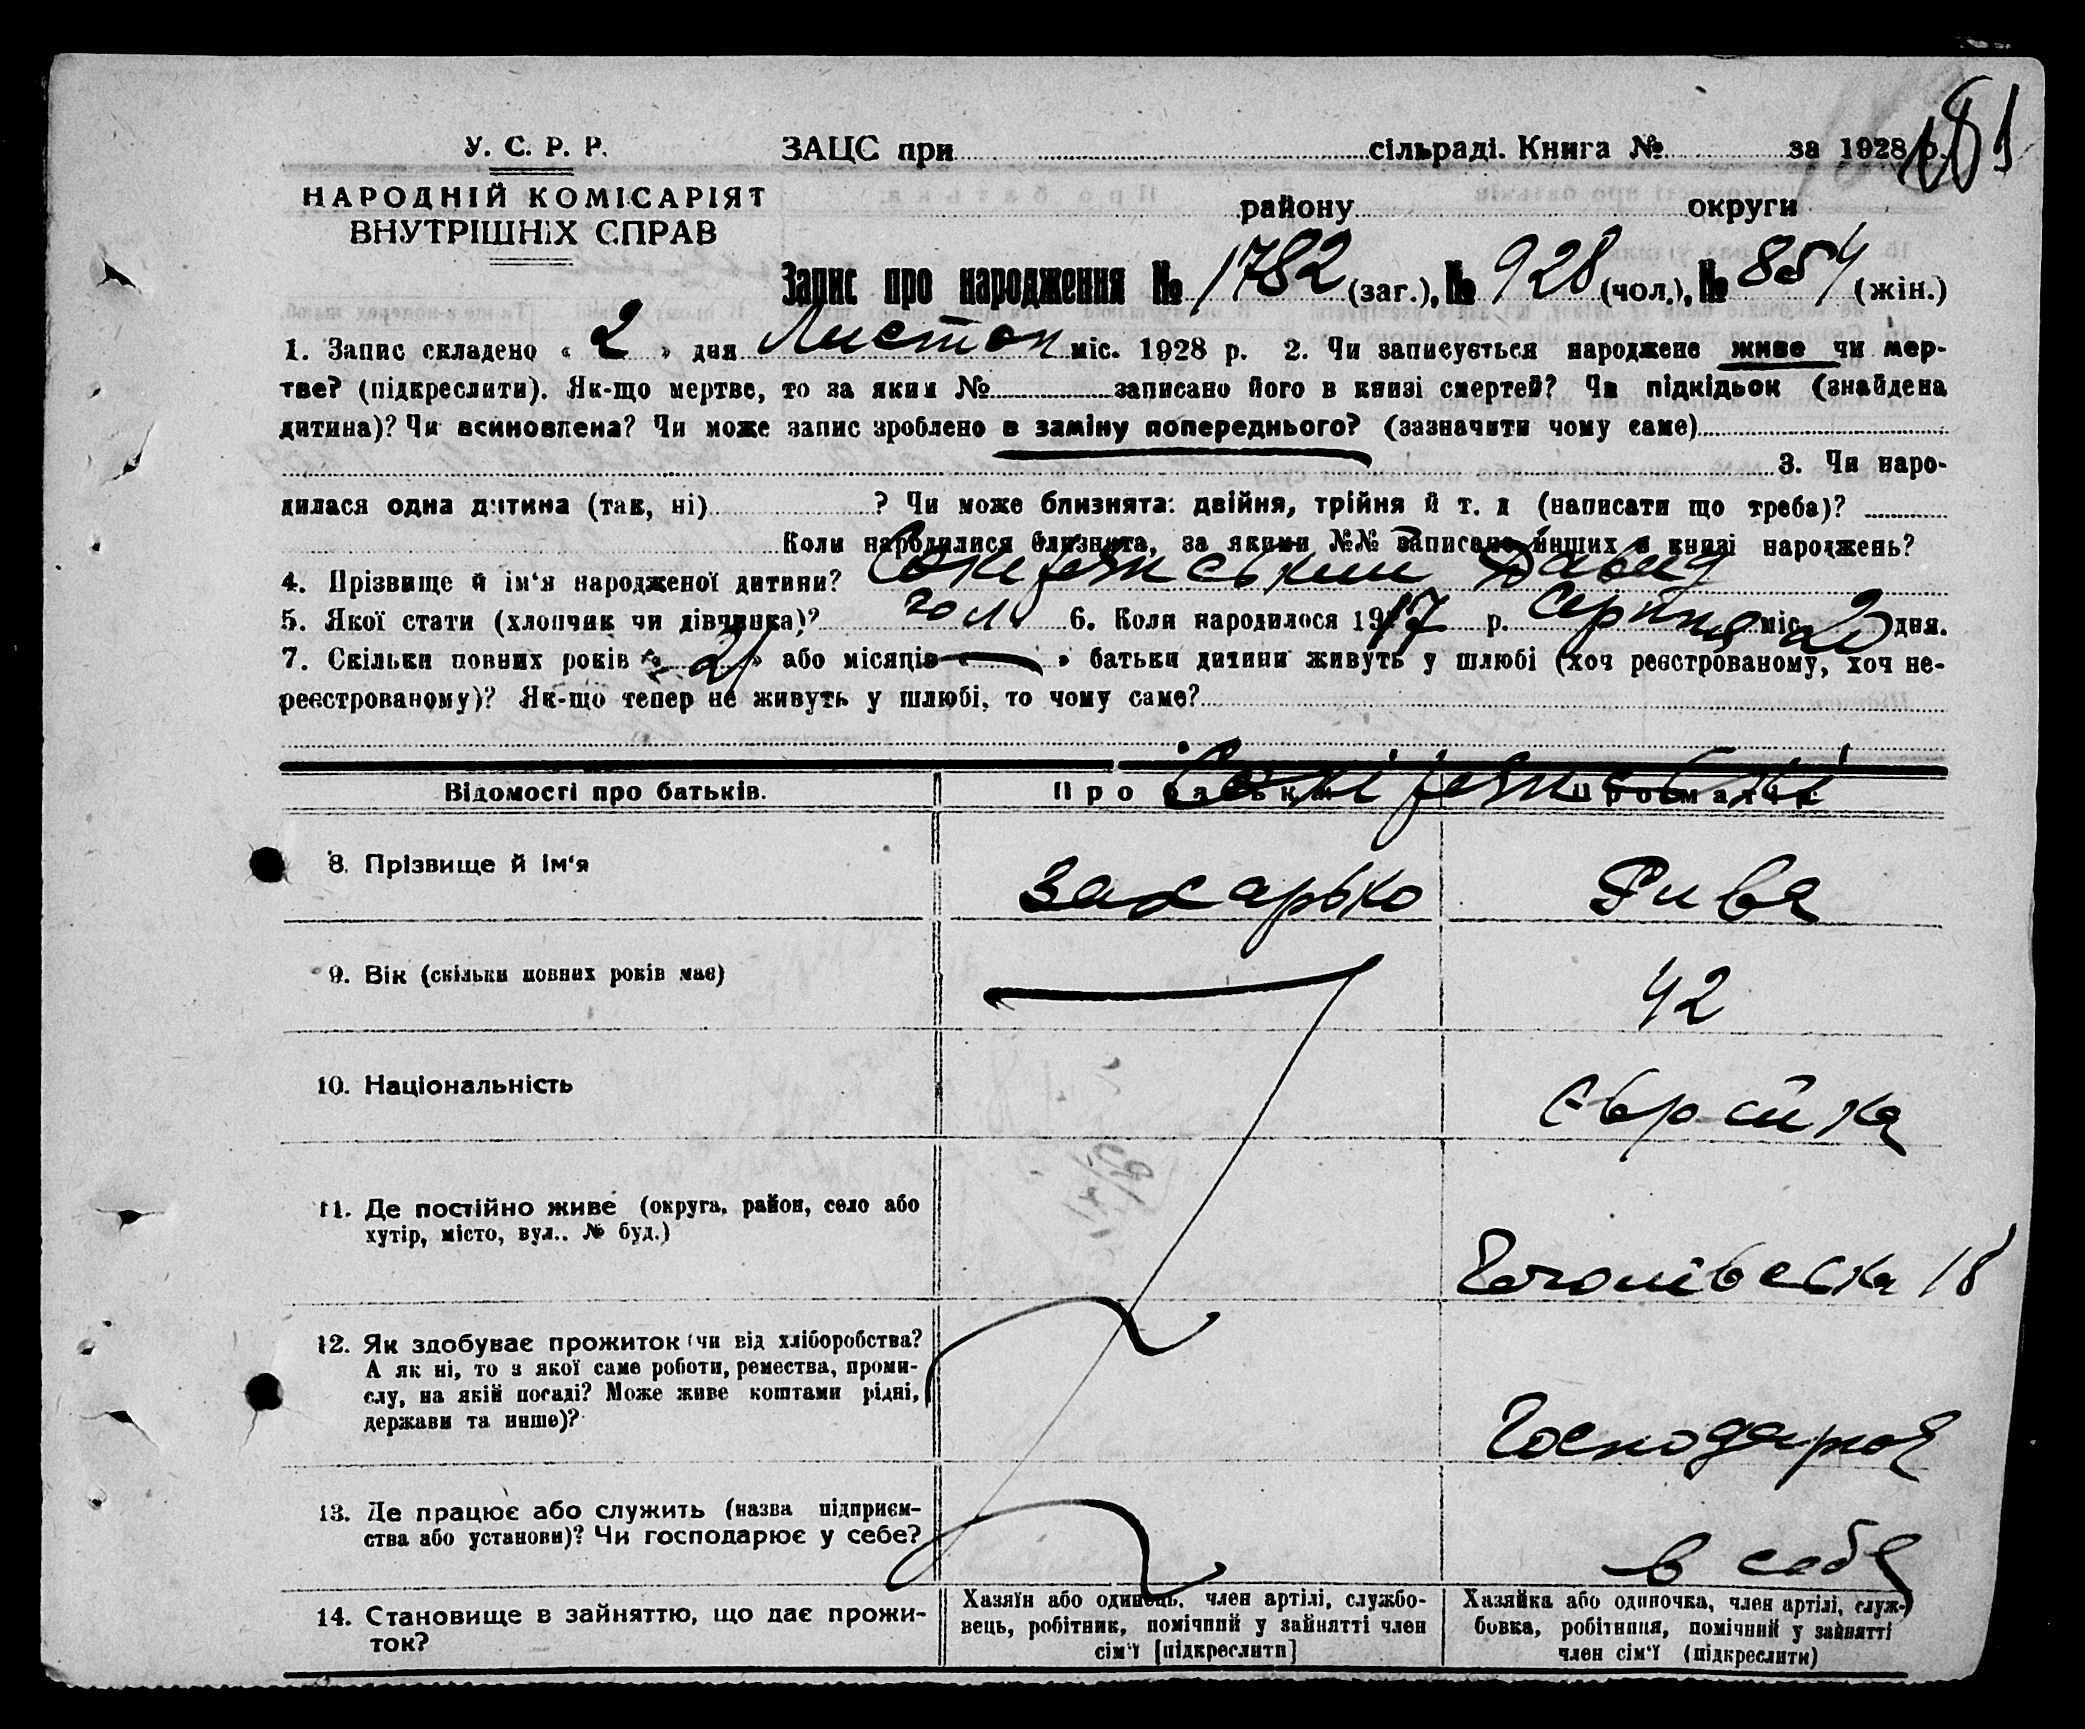 181
У. С. Р. Р.
НАРОДНІЙ КОМІСАРІЯТ
ВНУТРІШНІХ СПРАВ
ЗАЦС при сільраді. Книга № за 1928 р.
району округи
Запис про народження № 1782 (заг.), № 928 (чол.), № 854 (жін.)
1. Запис складено « 2 » дня Листоп міс. 1928 р. 2. Чи записується народжене живе чи мер-
тве? (підкреслити). Як-що мертве, то за яким № записано його в книзі смертей? Чи підкідьок (знайдена
дитина)? Чи всиновлена? Чи може запис зроблено в заміну попереднього? (зазначити чому саме)
3. Чи наро-
дилася одна дитина (так, ні) ? Чи може близнята: двійня, трійня й т. д (написати що треба)?
Коли народилися близнята, за якими №№ записано инших в книзі народжень?
4. Прізвище й ім'я народженої дитини? Давид
5. Якої стати (хлопчик чи дівчинка)? чол. 6. Коли народилося 1917 р. Серпня міс. дня.
7. Скільки повних років « 21 » або місяців « — » батьки дитини живуть у шлюбі (хоч реєстрованому, хоч не-
реєстрованому)? Як-що тепер не живуть у шлюбі, то чому саме?
Відомості про батьків. Про батька Про матір
8. Прізвище й ім'я Захарько Рива
9. Вік (скільки повних років має) — 42
10. Національність Єврейка
11. Де постійно живе (округа, район, село або
хутір, місто, вул.. № буд.) 18
12. Як здобуває прожиток (чи від хліборобства?
А як ні, то з якої саме роботи, ремества, проми-
слу, на якій посаді? Може живе коштами рідні,
держави та инше)? Господарює
13. Де працює або служить (назва підприєм-
ства або установи)? Чи господарює у себе? в себе
14. Становище в зайняттю, що дає прожи-
ток?
Хазяїн або одинець, член артілі, службо-
вець, робітник, помічний у зайнятті член
сім'ї [підкреслити]
Хазяйка або одиночка, член артілі, служ-
бовка, робітниця, помічний у зайнятті
член сім'ї (підкреслити)